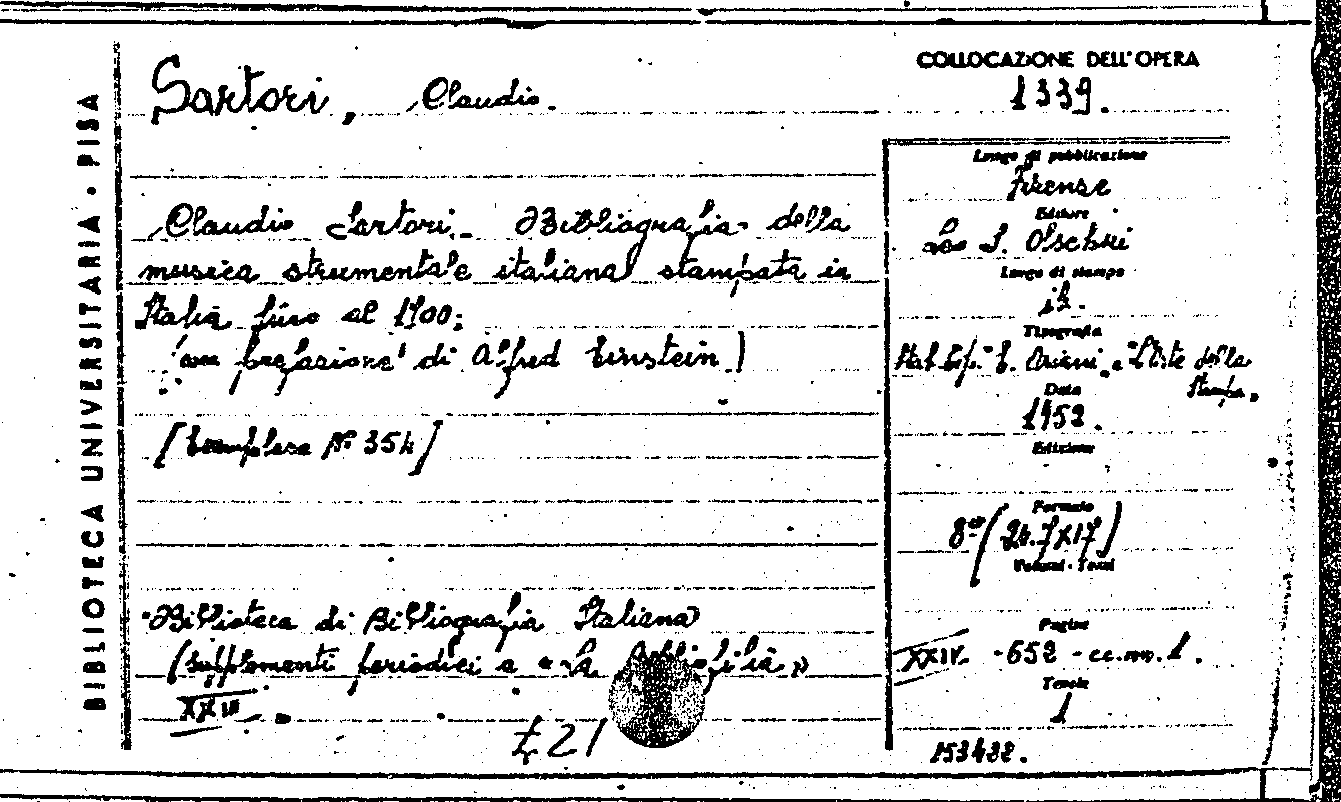 BIBLIOTECA UNIVERSITARIA · PISA
Sartori, Claudio.
Claudio Sartori.- Bibliografia della
musica strumentale italiana stampata in
Italia fino al 1700;
(con prefazione di Alfred Einstein)
[Esemplare Nº 354]
Biblioteca di Bibliografia Italiana
(Supplementi periodici a "La Bibliofilia"
XXIII
£21
COLLOCAZIONE DELL'OPERA
1339.
Luogo di pubblicazione
Firenze
Editore
Leo S. Olschki
Luogo di stampa
Tipografia
Stab. Tip. E. Ariani e "L'Arte della
Stampa"
Data
1952.
Edizione
Formato
8º (24.7x17)
Volumi - Tomi
Pagine
XXIV. -652 - cc.nn.1.
Tavole
1
153432.